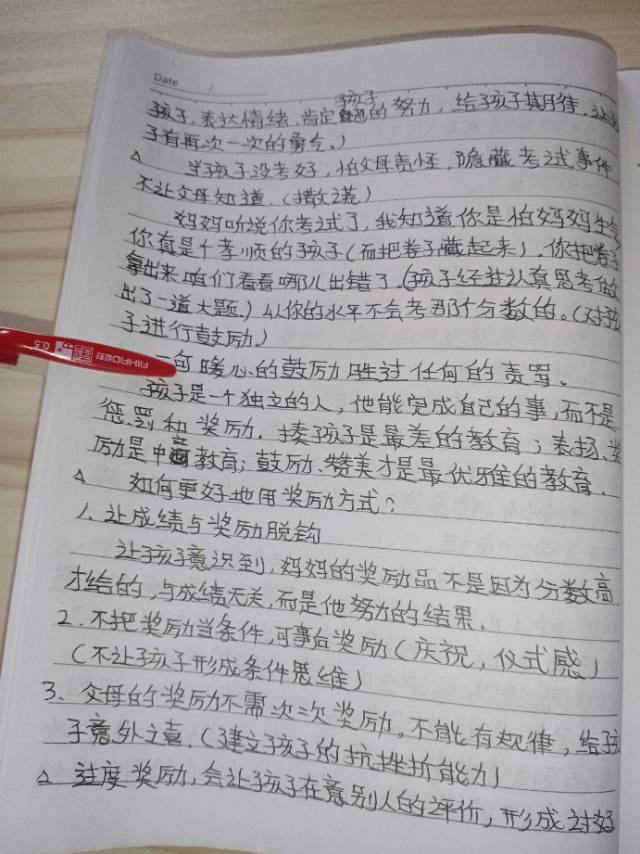 Date /
孩子
孩子,表达情绪、肯定的努力,给孩子期待,让孩
子有再次一次的勇气。)
△ 当孩子没考好,怕父母责怪,隐藏考试事件
不让父母知道。(撒谎)
妈妈听说你考试了,我知道你是怕妈妈生气
你真是个孝顺的孩子(而把卷子藏起来)。你把卷子
拿出来咱们看看哪儿出错了。(孩子经过认真思考做
出了一道大题。)从你的水平不会考那个分数的。(对孩
子进行鼓励。)
一句暖心的鼓励胜过任何的责骂。
孩子是一个独立的人,他能完成自己的事,而不是
惩罚和奖励。揍孩子是最差的教育;表扬、奖
励是中等教育;鼓励、赞美才是最优雅的教育。
△ 如何更好地用奖励方式?
1、让成绩与奖励脱钩
让孩子意识到,妈妈的奖励品不是因为分数高
才给的,与成绩无关,而是他努力的结果。
2.不把奖励当条件,可事后奖励(庆祝,仪式感)
(不让孩子形成条件思维)
3、父母的奖励不需次次奖励。不能有规律,给孩
子意外之喜。(建立孩子的抗挫折能力)
△ 过度奖励,会让孩子在意别人的评价,形成讨好
AIHAO 爱好 0.5